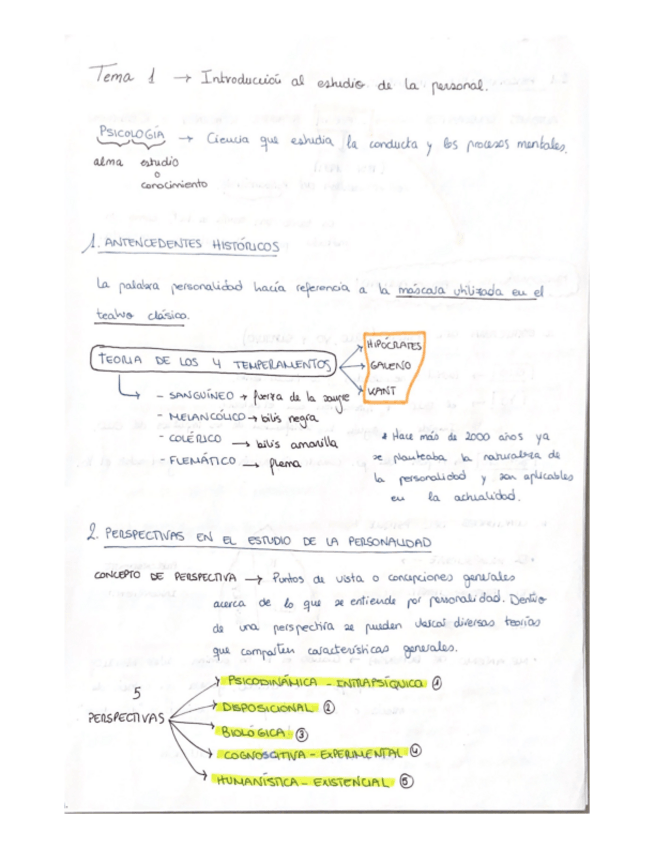 Tema 1 → Introducción al estudio de la personal.
PSICOLOGÍA → Ciencia que estudia la conducta y los procesos mentales.
alma estudio
o
conocimiento
1. ANTENCEDENTES HISTÓRICOS
La palabra personalidad hacía referencia a la máscara utilizada en el
teatro clásico.
TEORIA DE LOS 4 TEMPERAMENTOS
HIPÓCRATES
GALENO
KANT
- SANGUÍNEO → fuerza de la sangre
- MELANCÓLICO → bilis negra
- COLÉRICO → bilis amarilla
- FLEMÁTICO → flema
* Hace más de 2000 años ya
se planteaba la naturaleza de
la personalidad y son aplicables
en la actualidad.
2. PERSPECTIVAS EN EL ESTUDIO DE LA PERSONALIDAD
CONCEPTO DE PERSPECTIVA → Puntos de vista o concepciones generales
acerca de lo que se entiende por personalidad. Dentro
de una perspectiva se pueden diversas teorías
que comparten características generales.
5
PERSPECTIVAS
PSICODINÁMICA - INTRAPSÍQUICA ①
DISPOSICIONAL ②
BIOLÓGICA ③
COGNOSCITIVA - EXPERIMENTAL ④
HUMANÍSTICA - EXISTENCIAL ⑤